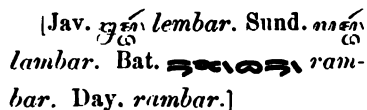 [Jav. ꦊꦩ꧀ꦧꦂ lembar. Sund. ꦭꦩ꧀ꦧꦂ
lambar. Bat. ram-
bar. Day. rambar.]